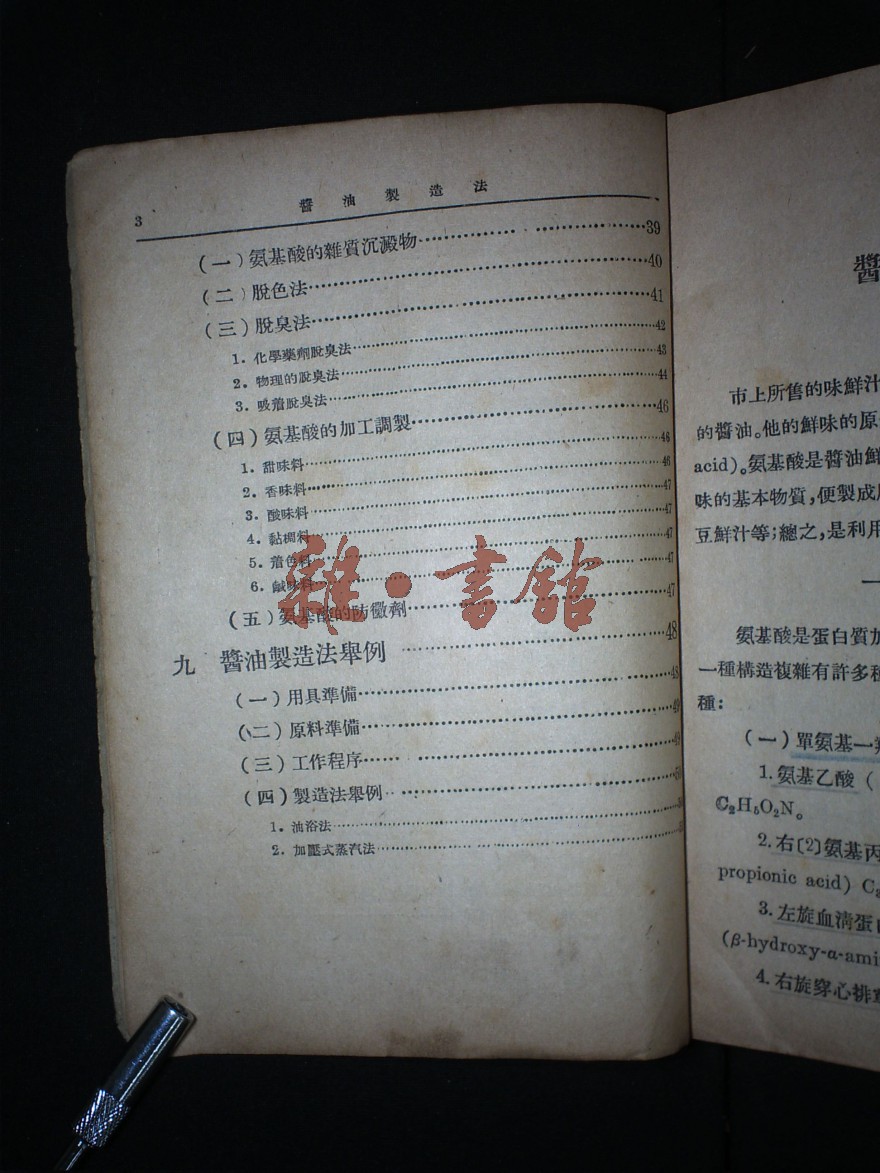 3 醬油製造法
(一)氨基酸的雜質沉澱物……39
(二)脱色法……40
(三)脱臭法……41
1. 化學藥劑脫臭法……42
2. 物理的脫臭法……43
3. 吸着脫臭法……44
(四)氨基酸的加工調製……46
1. 甜味料……46
2. 香味料……46
3. 酸味料……47
4. 黏稠料……47
5. 着色料……47
6. 鹹味料……47
(五)氨基酸的防黴劑……47
九 醬油製造法舉例……48
(一)用具準備……48
(二)原料準備……49
(三)工作程序……49
(四)製造法舉例……50
1. 油浴法……
2. 加壓式蒸汽法……
雜·書館
醬
市上所售的味鮮汁
的醬油。他的鮮味的原
acid)。氨基酸是醬油鮮
味的基本物質,便製成
豆鮮汁等;總之,是利用
一
氨基酸是蛋白質加
一種構造複雜有許多種
種:
(一)單氨基一
1. 氨基乙酸 (
C₂H₅O₂N。
2. 右〔2〕氨基丙
propionic acid) C₃
3. 左旋血清蛋白
(β-hydroxy-α-ami
4. 右旋穿心排